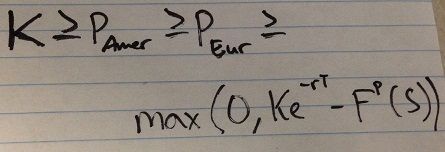 K ≥ P_Amer ≥ P_Eur ≥
max(0, Ke^{-rT} - F^P(S))